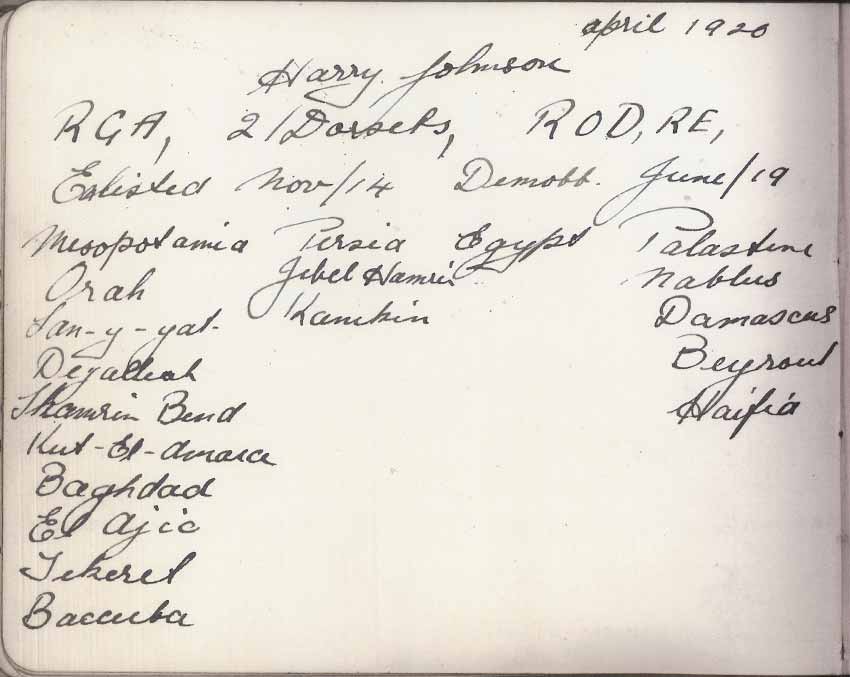 April 1920
Harry Johnson
RGA, 2/Dorsets, ROD, RE,
Enlisted Nov/14 Demobb. June/19
Mesopotamia Persia Egypt Palastine
Orah Jebel Hamrin Nablus
San-y-yat. Kanikin Damascus
Deyalleah Beyrout
Shamrin Bend Haifia
Kut-El-Amara
Baghdad
El Ajic
Tekeret
Baccuba